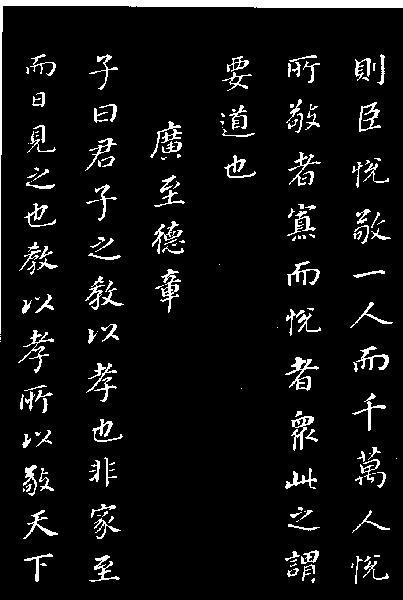 則臣悅敬一人而千萬人悅
所敬者寡而悅者眾此之謂
要道也
廣至德章
子曰君子之教以孝也非家至
而日見之也教以孝所以敬天下